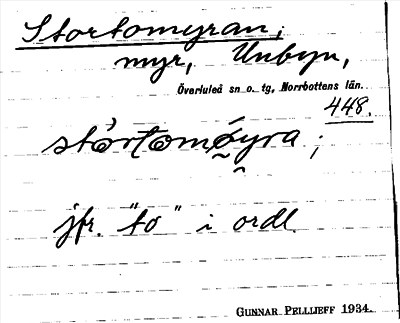 Stortomyran;
myr, Unbyn,
Överluleå sn o. tg, Norrbottens län.
448.
jfr. "to" i ordl.
GUNNAR PELLIJEFF 1934.